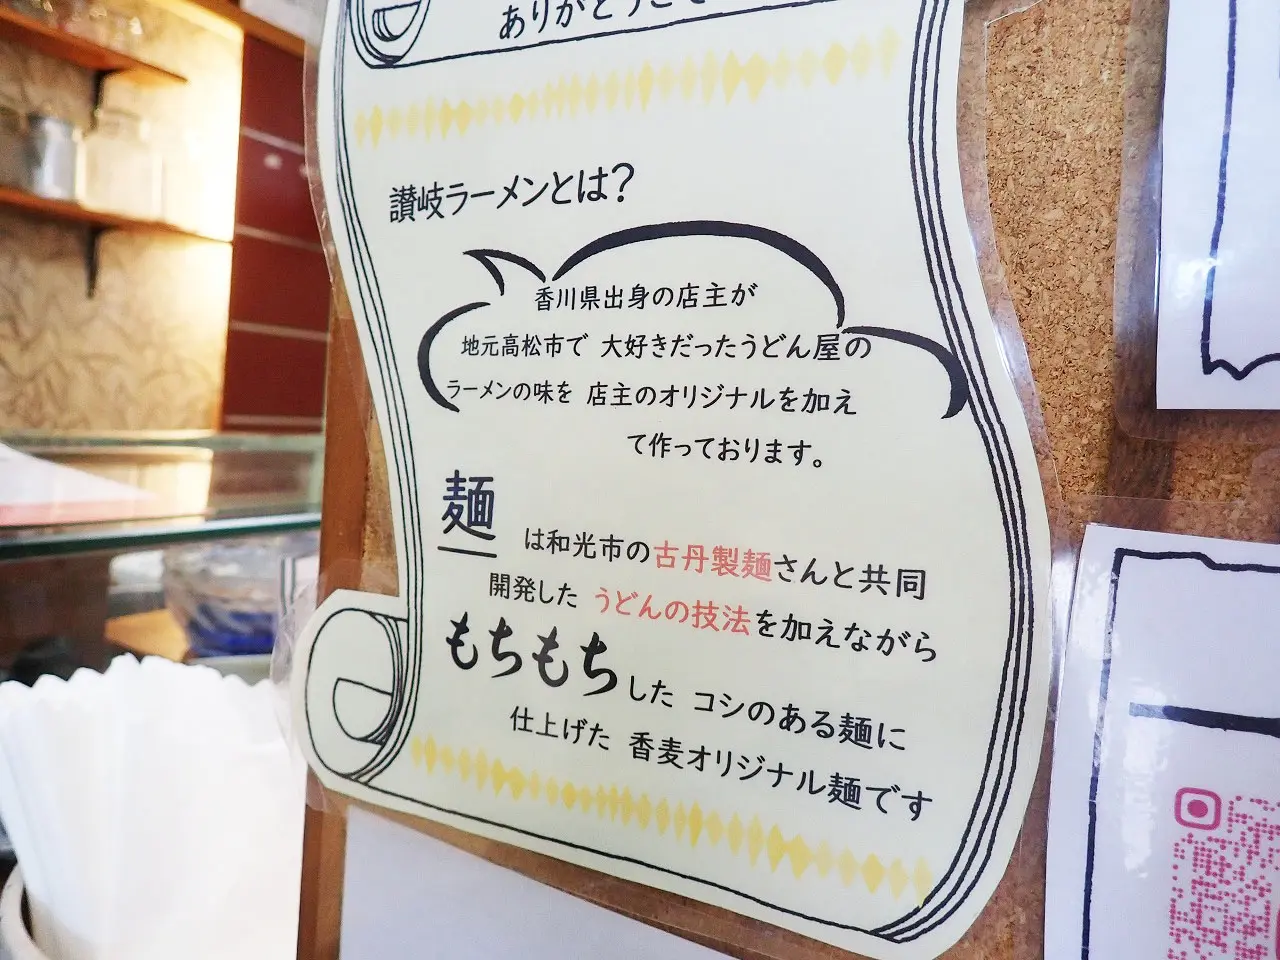 ありがとうござ
讃岐ラーメンとは?
香川県出身の店主が
地元高松市で 大好きだったうどん屋の
ラーメンの味を 店主のオリジナルを加え
て作っております。
麺
は和光市の古丹製麺さんと共同
開発した うどんの技法を加えながら
もちもちした コシのある麺に
仕上げた 香麦オリジナル麺です